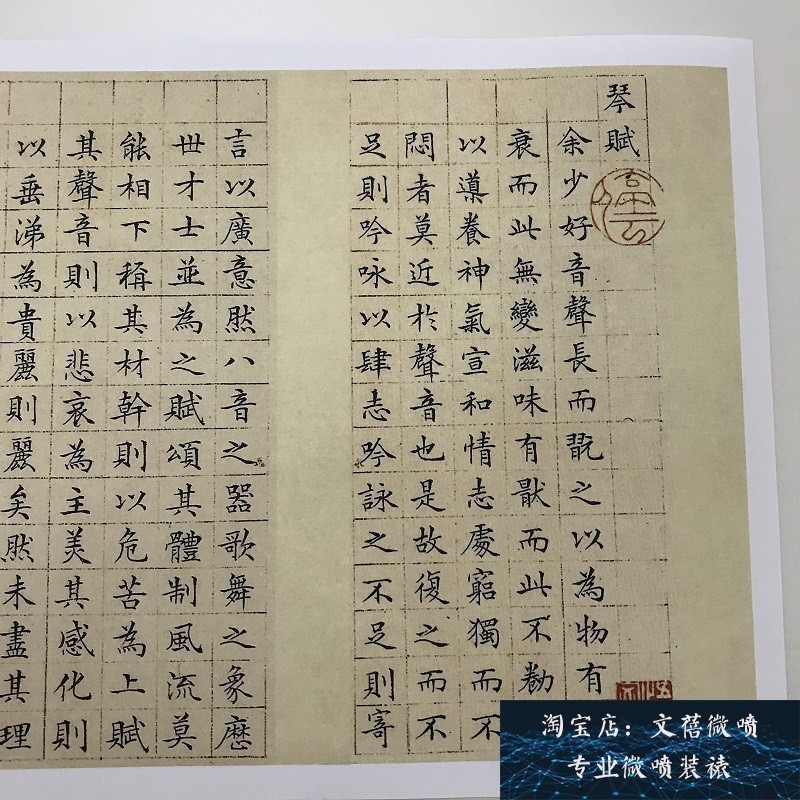 琴賦
余少好音聲長而翫之以為物有
衰而此無變滋味有猒而此不勌
以導養神氣宣和情志處窮獨而不
悶者莫近於聲音也是故復之而不
足則吟咏以肆志吟詠之不足則寄
言以廣意然八音之器歌舞之象歷
世才士並為之賦頌其體制風流莫
能相下稱其材幹則以危苦為上賦
其聲音則以悲哀為主美其感化則
以垂涕為貴麗則麗矣然未盡其理
淘宝店：文蓓微喷
专业微喷装裱